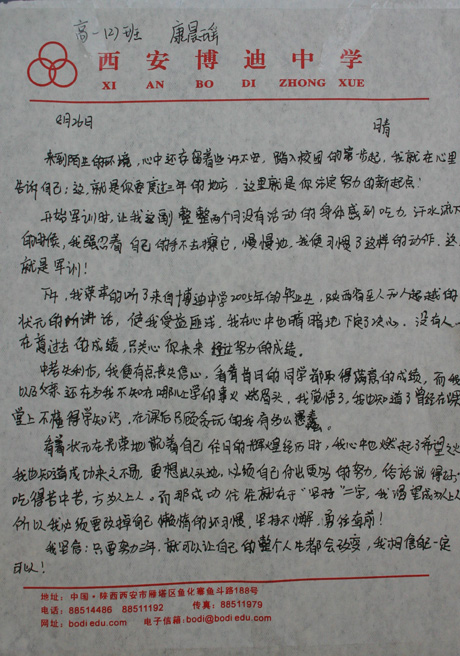 高一(2)班 康晨瑶
西安博迪中学
XI AN BO DI ZHONG XUE
8月26日 晴
来到陌生的环境，心中还存留着些许不安，踏入校园的第一步起，我就在心里
告诉自己：这，就是你要度过三年的地方，这里就是你活定努力的新起点！
开始军训时，让我这副整整两个月没有活动的身体感到吃力，汗水流下
的时候，我强忍着自己的手不去擦它，慢慢地，我便习惯了这样的动作，这
就是军训！
下午，我荣幸的听了来自博迪中学2005年的毕业生，陕西省
状元的讲话，使我受益匪浅。我在心中也暗暗地下定了决心，没有人
在意过去的成绩，只关心你未来努力的成绩。
中考失利后，我便有点丧失信心，看着昔日的同学都取得满意的成绩，而我
以及父亲还在为我不知在哪儿上学的事火烧眉头，我觉悟了，我也知道了曾经在课
堂上不懂得学知识，在课后只顾贪玩的我有多么愚蠢。
看着状元在光荣地散着自己往日的辉煌经历时，我心中也燃起了希望之火
我也知道成功来之不易，更想出人头地，必须自己付出更多的努力，俗话说得好：
吃得苦中苦，方为人上人。而那成功往往就在于“坚持”二字，我渴望成为人上人
所以我必须要改掉自己懒惰的坏习惯，坚持不懈，勇往直前！
我坚信：只要努力三年，就可以让自己的整个人生都会改变，我相信自己一定
可以！
地址：中国·陕西西安市雁塔区鱼化寨鱼斗路188号
电话：88514486 88511192 传真：88511979
网址：bodiedu.com 电子信箱：bodi@bodiedu.com